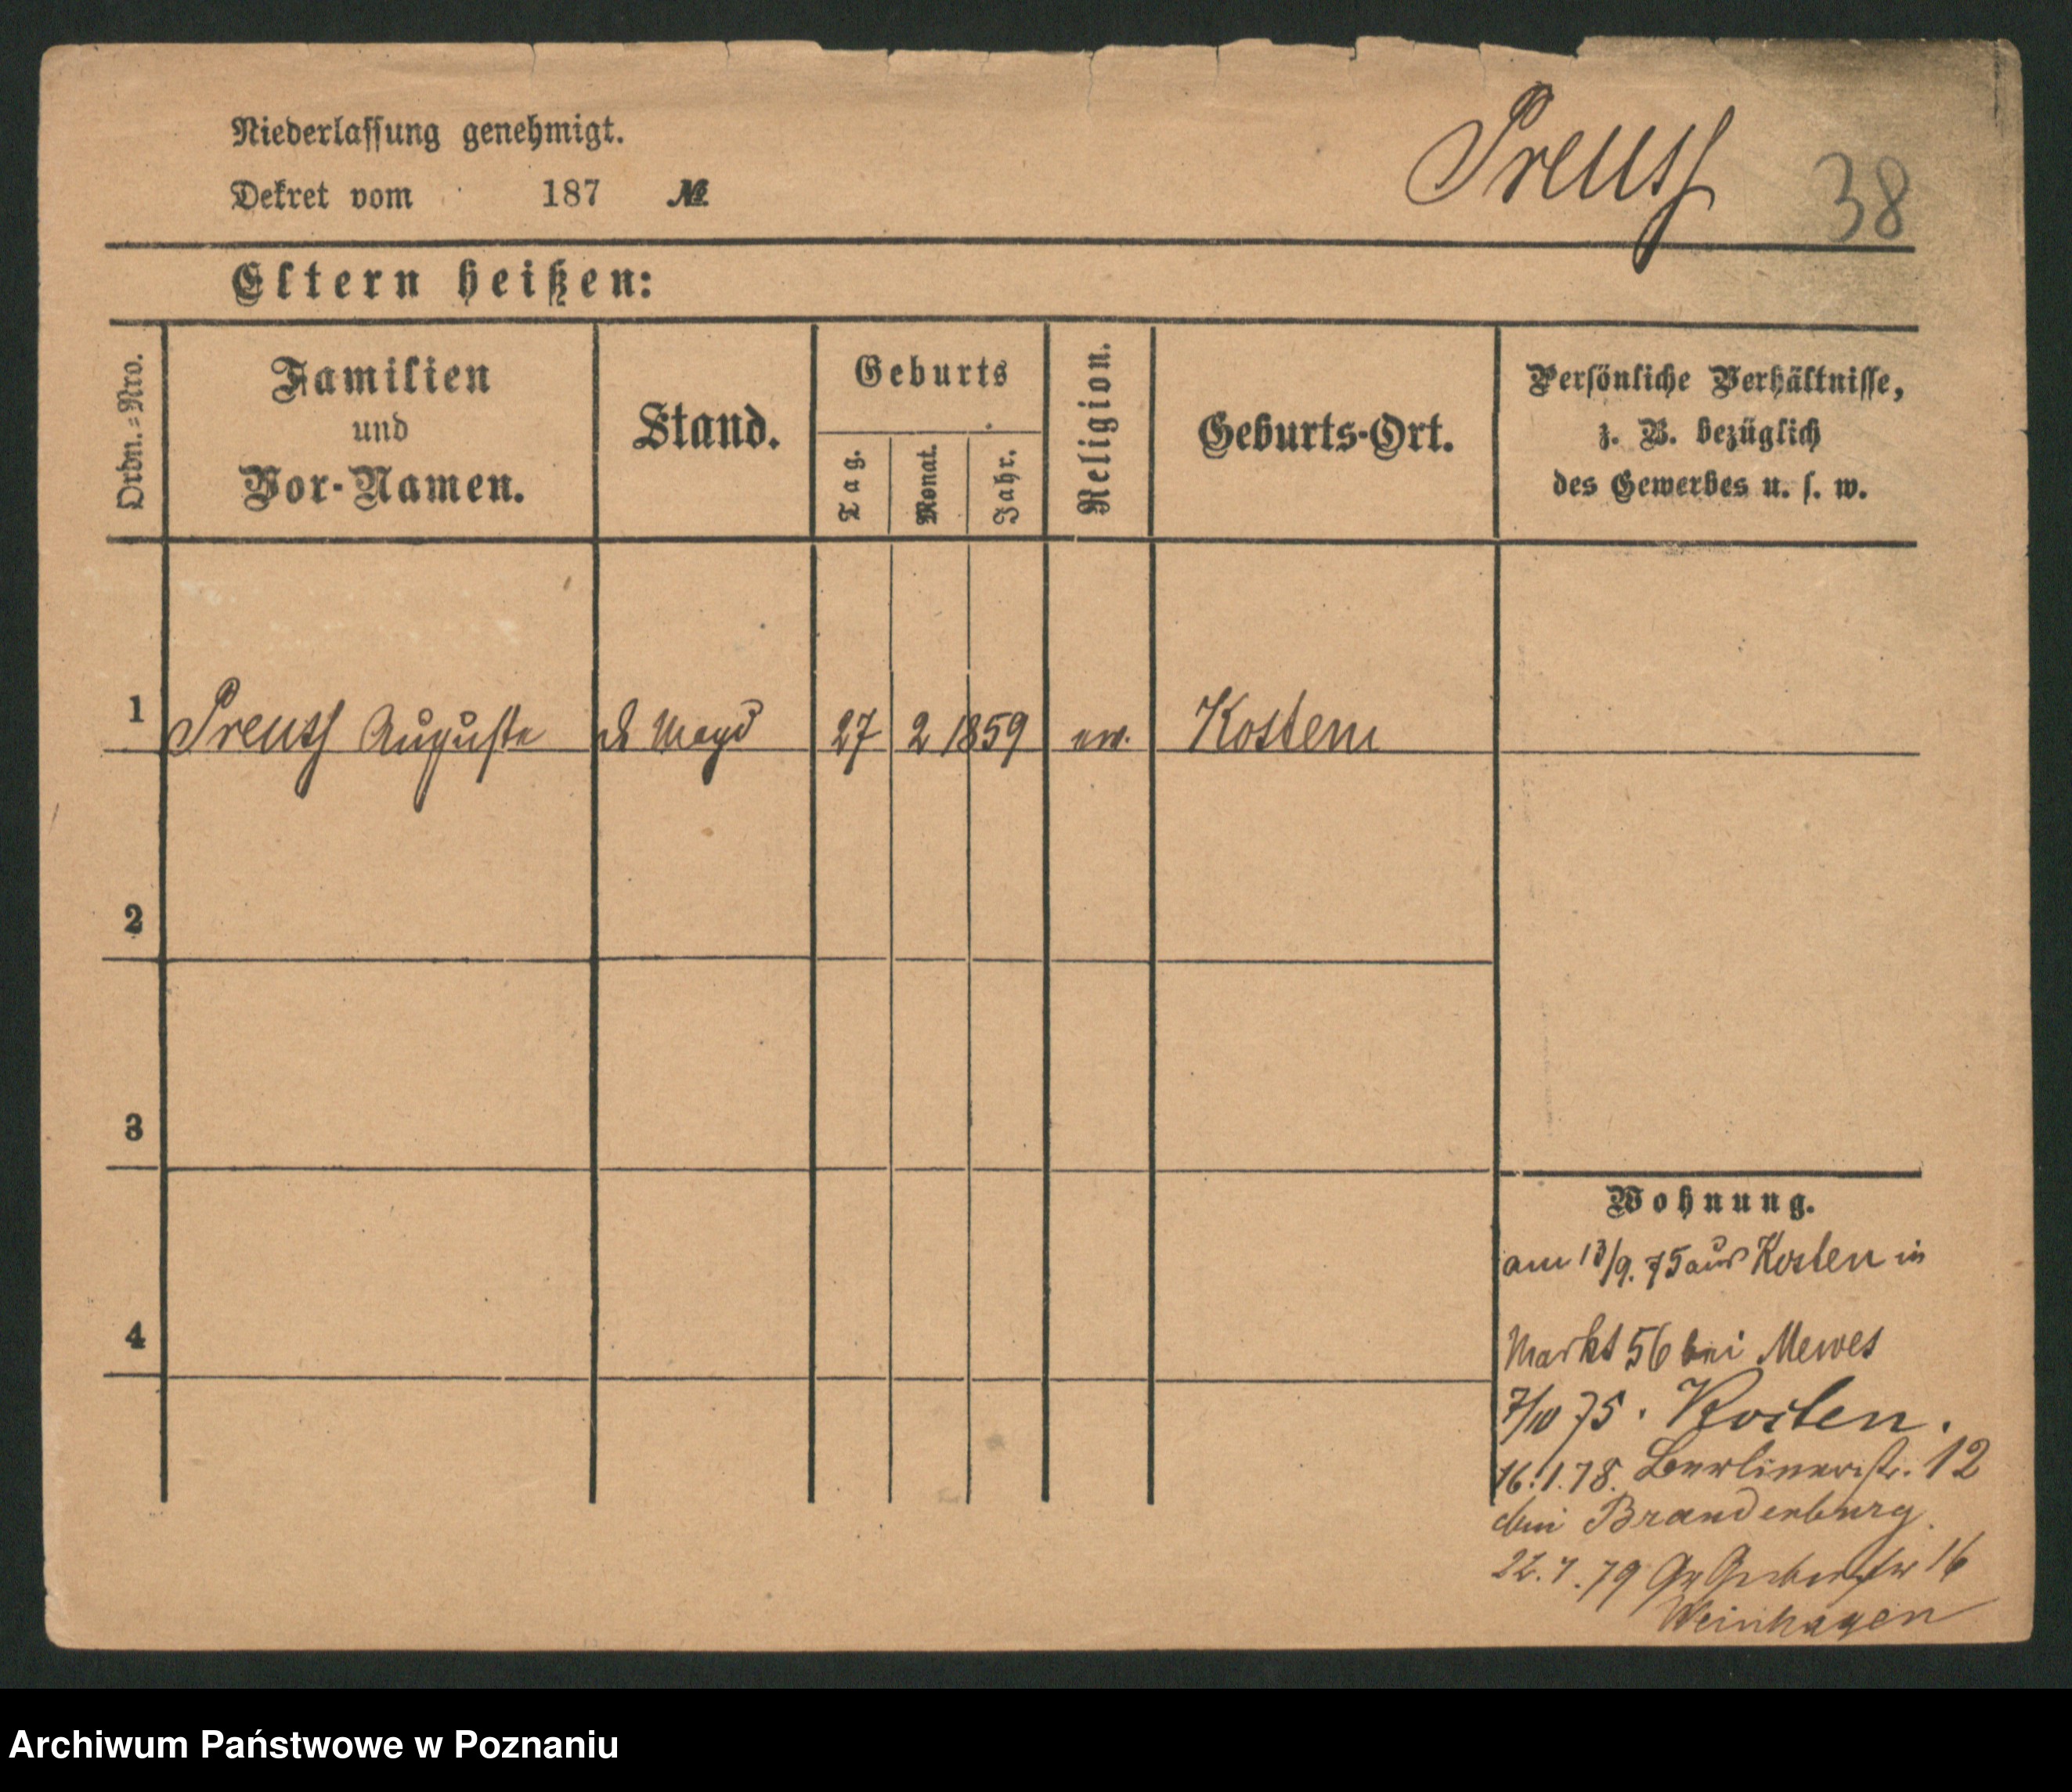 Niederlassung genehmigt.
Dekret vom 187 №
Preuss 38
Eltern heißen:
Ordn.=Nro.
Familien
und
Vor-Namen.
Stand.
Geburts
Tag.
Monat.
Jahr.
Religion.
Geburts-Ort.
Persönliche Verhältnisse,
z. B. bezüglich
des Gewerbes u. s. w.
1 Preuss Auguste d Magd 27 2 1859 ev. Kosten
2
3
4
Wohnung.
am 13/9. 75 aus Kosten in
Markt 56 bei Mewes
7/10 75. Kosten.
16.1.78. Berlinerstr. 12
bei Brandenburg
79 Gr 16
Weinhagen
Archiwum Państwowe w Poznaniu